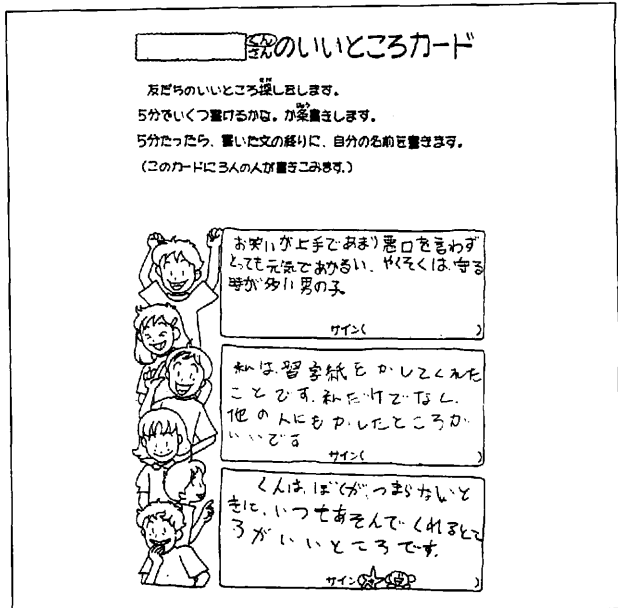 くん
さん のいいところカード
友だちのいいところ探しをします。
5分でいくつ書けるかな。か条書きします。
5分たったら、書いた文の終りに、自分の名前を書きます。
(このカードに3人の人が書きこみます。)
お笑いが上手であまり悪口を言わず
とっても元気であかるい、やくそくは、守る
時が多い男の子
サイン( )
私は、習字紙をかしてくれた
ことです。私だけでなく、
他の人にもかしたところが
いいです
サイン( )
くんは、ぼくが、つまらないと
きに、いつもあそんでくれるとこ
ろがいいところです。
サイン( )